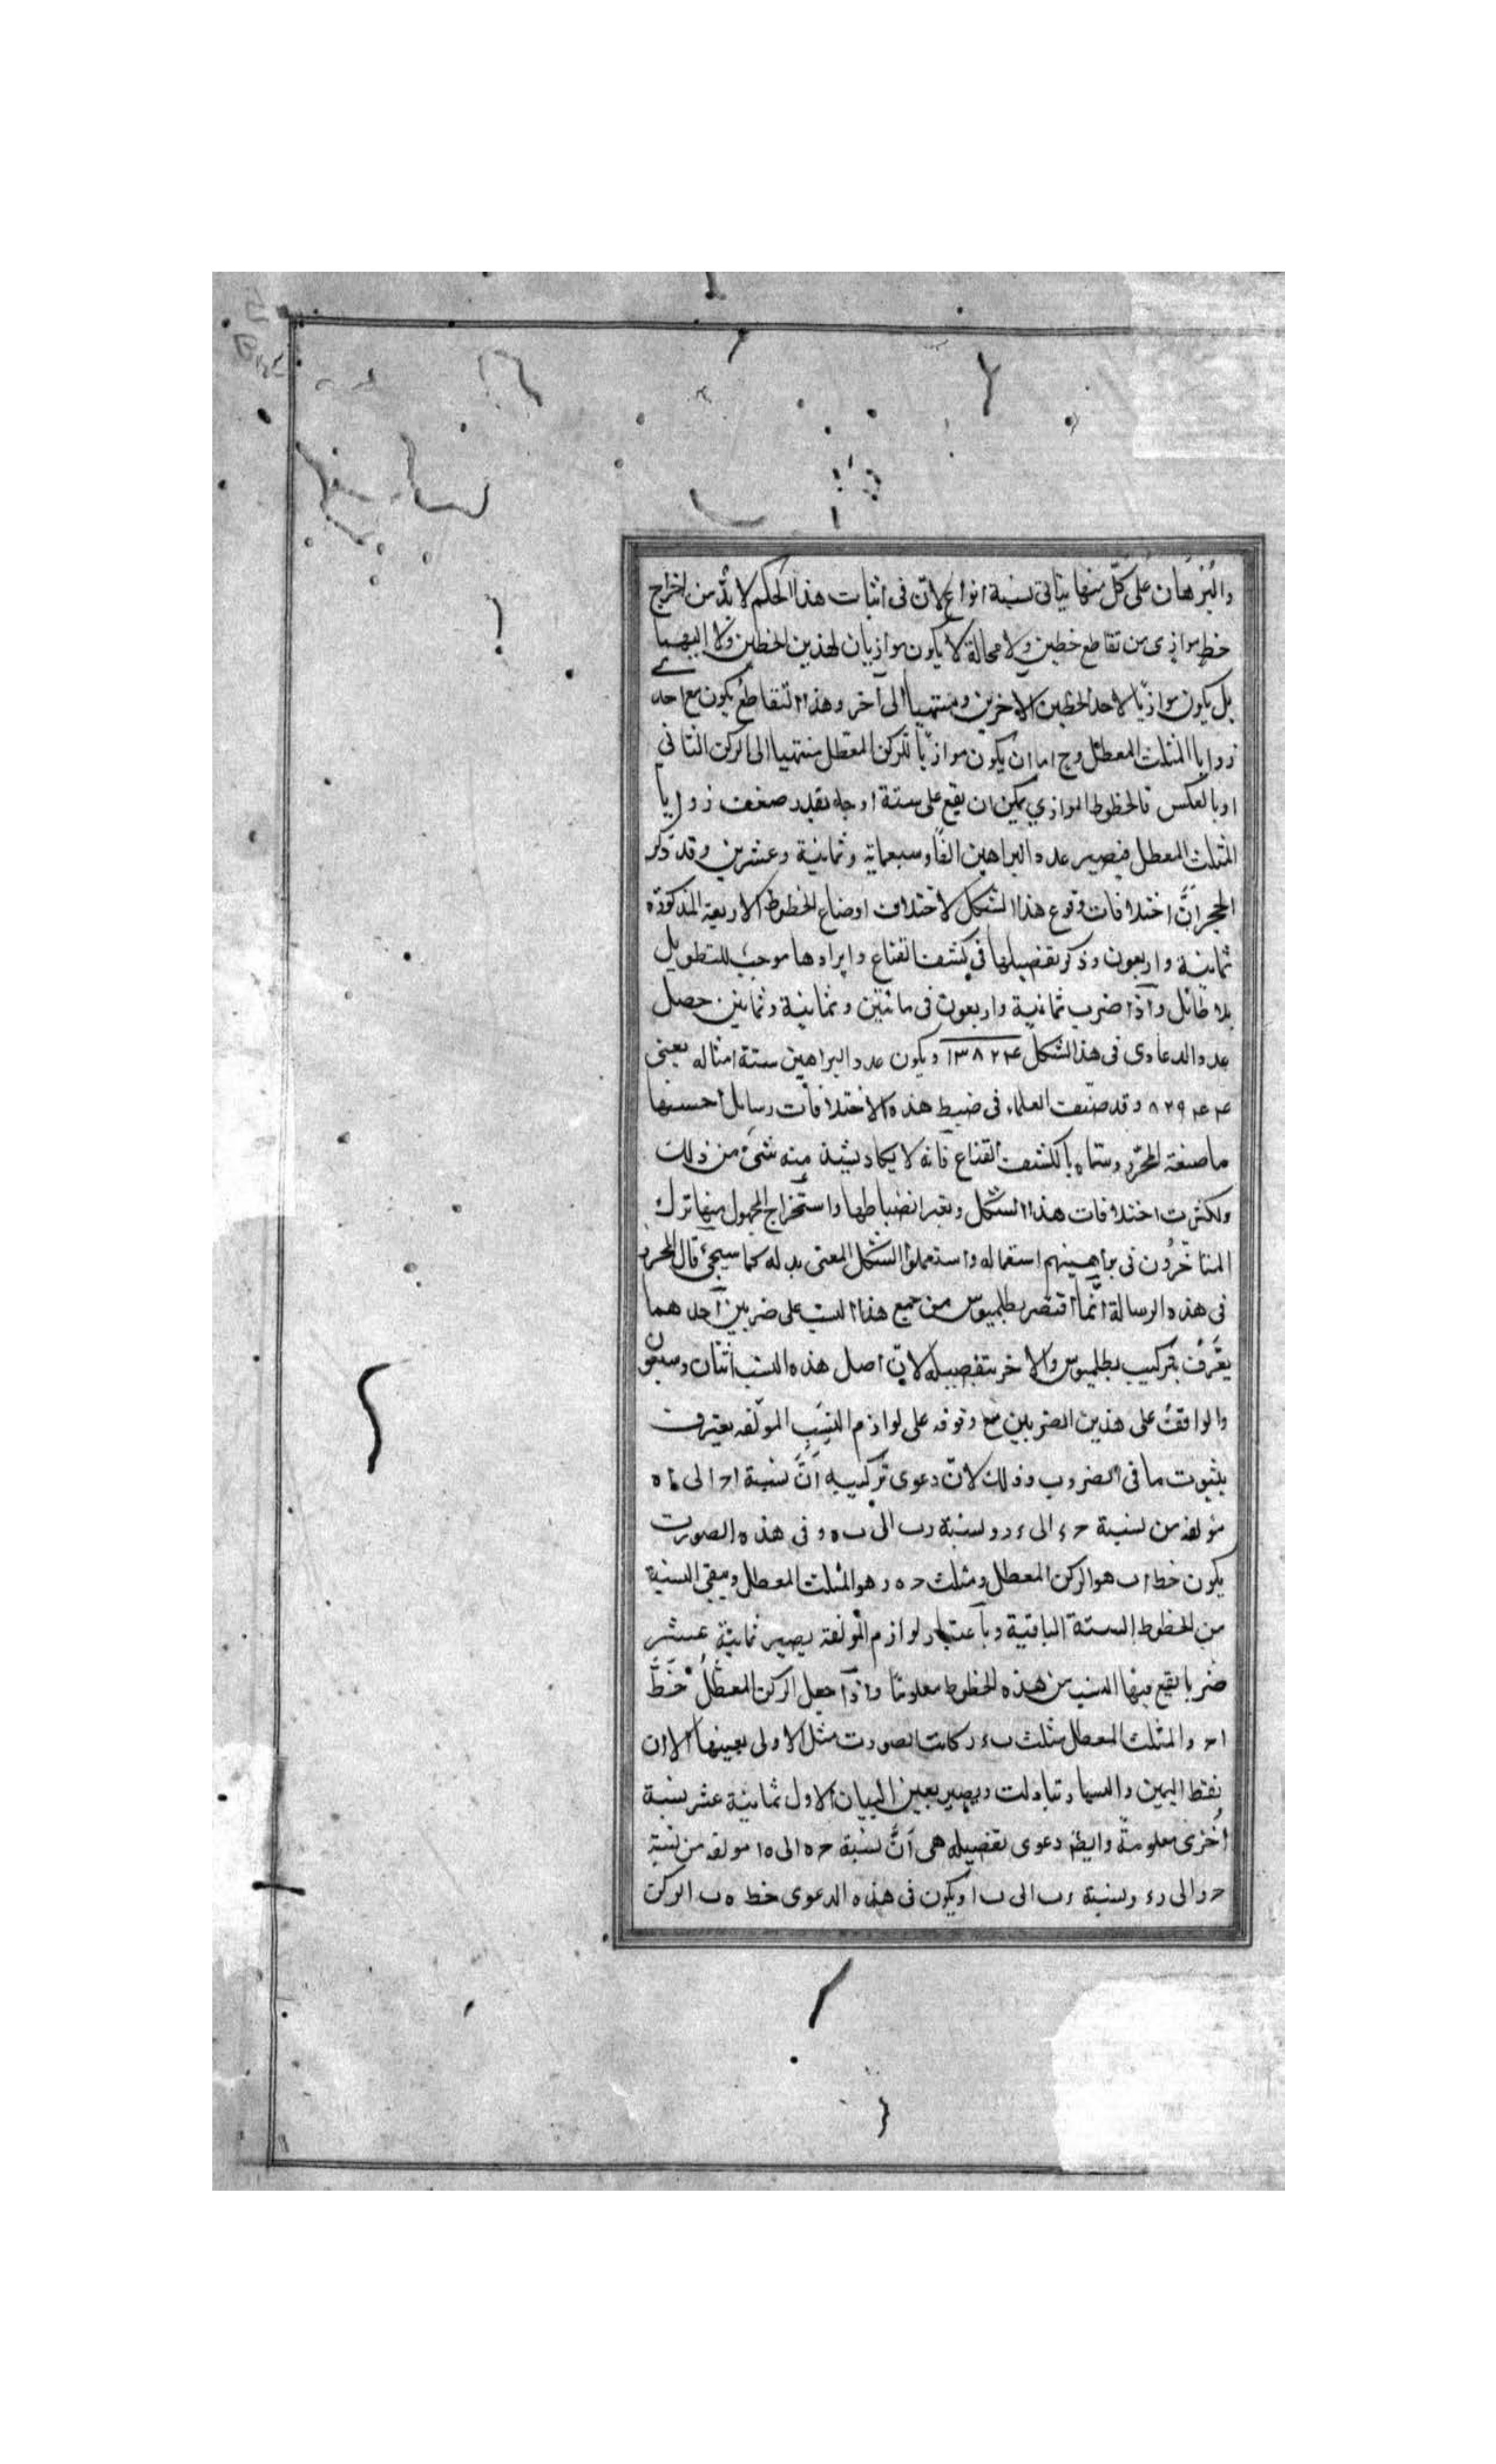 والبُرْهَان على كلّ منها يتاتى بستة انواع لانّ فى اثبات هذا الحكم لا بدّ من اخراج
خط موازى من تقاطع خطين ولا محالة لا يكون موازيان لهذين الخطين ولا اليهما
بل يكون موازيّا لاحد الخطين الاخرين ومنتهيا الى آخر وهذا التقاطع يكون مع احدى
زوايا المثلث المعطل وح اما ان يكون موازيّا للركن المعطل منتهيا الى الركن الثانى
او بالعكس فالخطوط الموازي يمكن ان يقع على ستة اوجه بقدر ضعف زوايا
المثلث المعطل فيصير عدد البراهين الفًا وسبعماية وثمانية وعشرين وقد ذكر
المحرر انَّ اختلافات وقوع هذا الشكل لاختلاف اوضاع الخطوط الاربعة المذكورة
ثمانية واربعون وذكر تفصيلها فى كشف القناع وايرادها موجب للتطويل
بلا طائل وآذا ضرب ثمانية واربعون فى مائتين وثمانية وثمانين حصل
عدد الدعاوى فى هذا الشكل ١٣٨٢٤ ويكون عدد البراهين ستة امثاله يعنى
٨٢٩٤٤ وقد صنّف العلماء فى ضبط هذه الاختلافات رسايل احسنها
ما صنفه المحرّر وسمّاه بالكشف القناع فانه لا يكاد يشذ منه شىء من ذلك
ولكثرت اختلافات هذا الشكل وتعسر انضباطها واستخراج المجهول منها ترك
المتاخرُون فى براهينهم استعماله واستعملوا الشكل المغنى بدله كما سيجىء قال المحرر
فى هذه الرسالة انّما اقتصر بطلميوس من جميع هذا النسب على ضربين آحدهما
يعَرّفُ بتركيب بطلميوس والاخر بتفصيله لانّ اصل هذه النسب اثنان وسبعون
والواقفُ على هذين الضربين مع وقوفه على لوازم النِسَبِ المؤلفه يعترف
بثبوت ما فى الضروب وذلك لانّ دعوى تركيبه انَّ نسبة اح الى ا ه
مؤلفه من نسبة ح ء الى ء ر ونسبة رب الى ب ه وفى هذه الصورت
يكون خط اب هو الركن المعطل ومثلث ح ه ر هو المثلث المعطل ويبقى النسبة
من الخطوط الستة الباقية وبآعتبار لوازم المؤلفة يصير ثمانية عشر
ضربا يقع فيها النسب من هذه الخطوط معلومًا وآذا جعل الركن المعطلُ خطَّ
اح والمثلث المعطل مثلث ب ء ر كانت الصورت مثل الاولى بعينها الا ان
نقط اليمين واليسار تبادلت ويصير بعين البيان الاول ثمانية عشر نسبة
اُخرى معلومة وايضا دعوى تفصيله هى انَّ نسبة ح ه الى ه ا مولفه من نسبة
ح ر الى ر ء ونسبة ء ب الى ب ا ويكون فى هذه الدعوى خط ه ب الركن